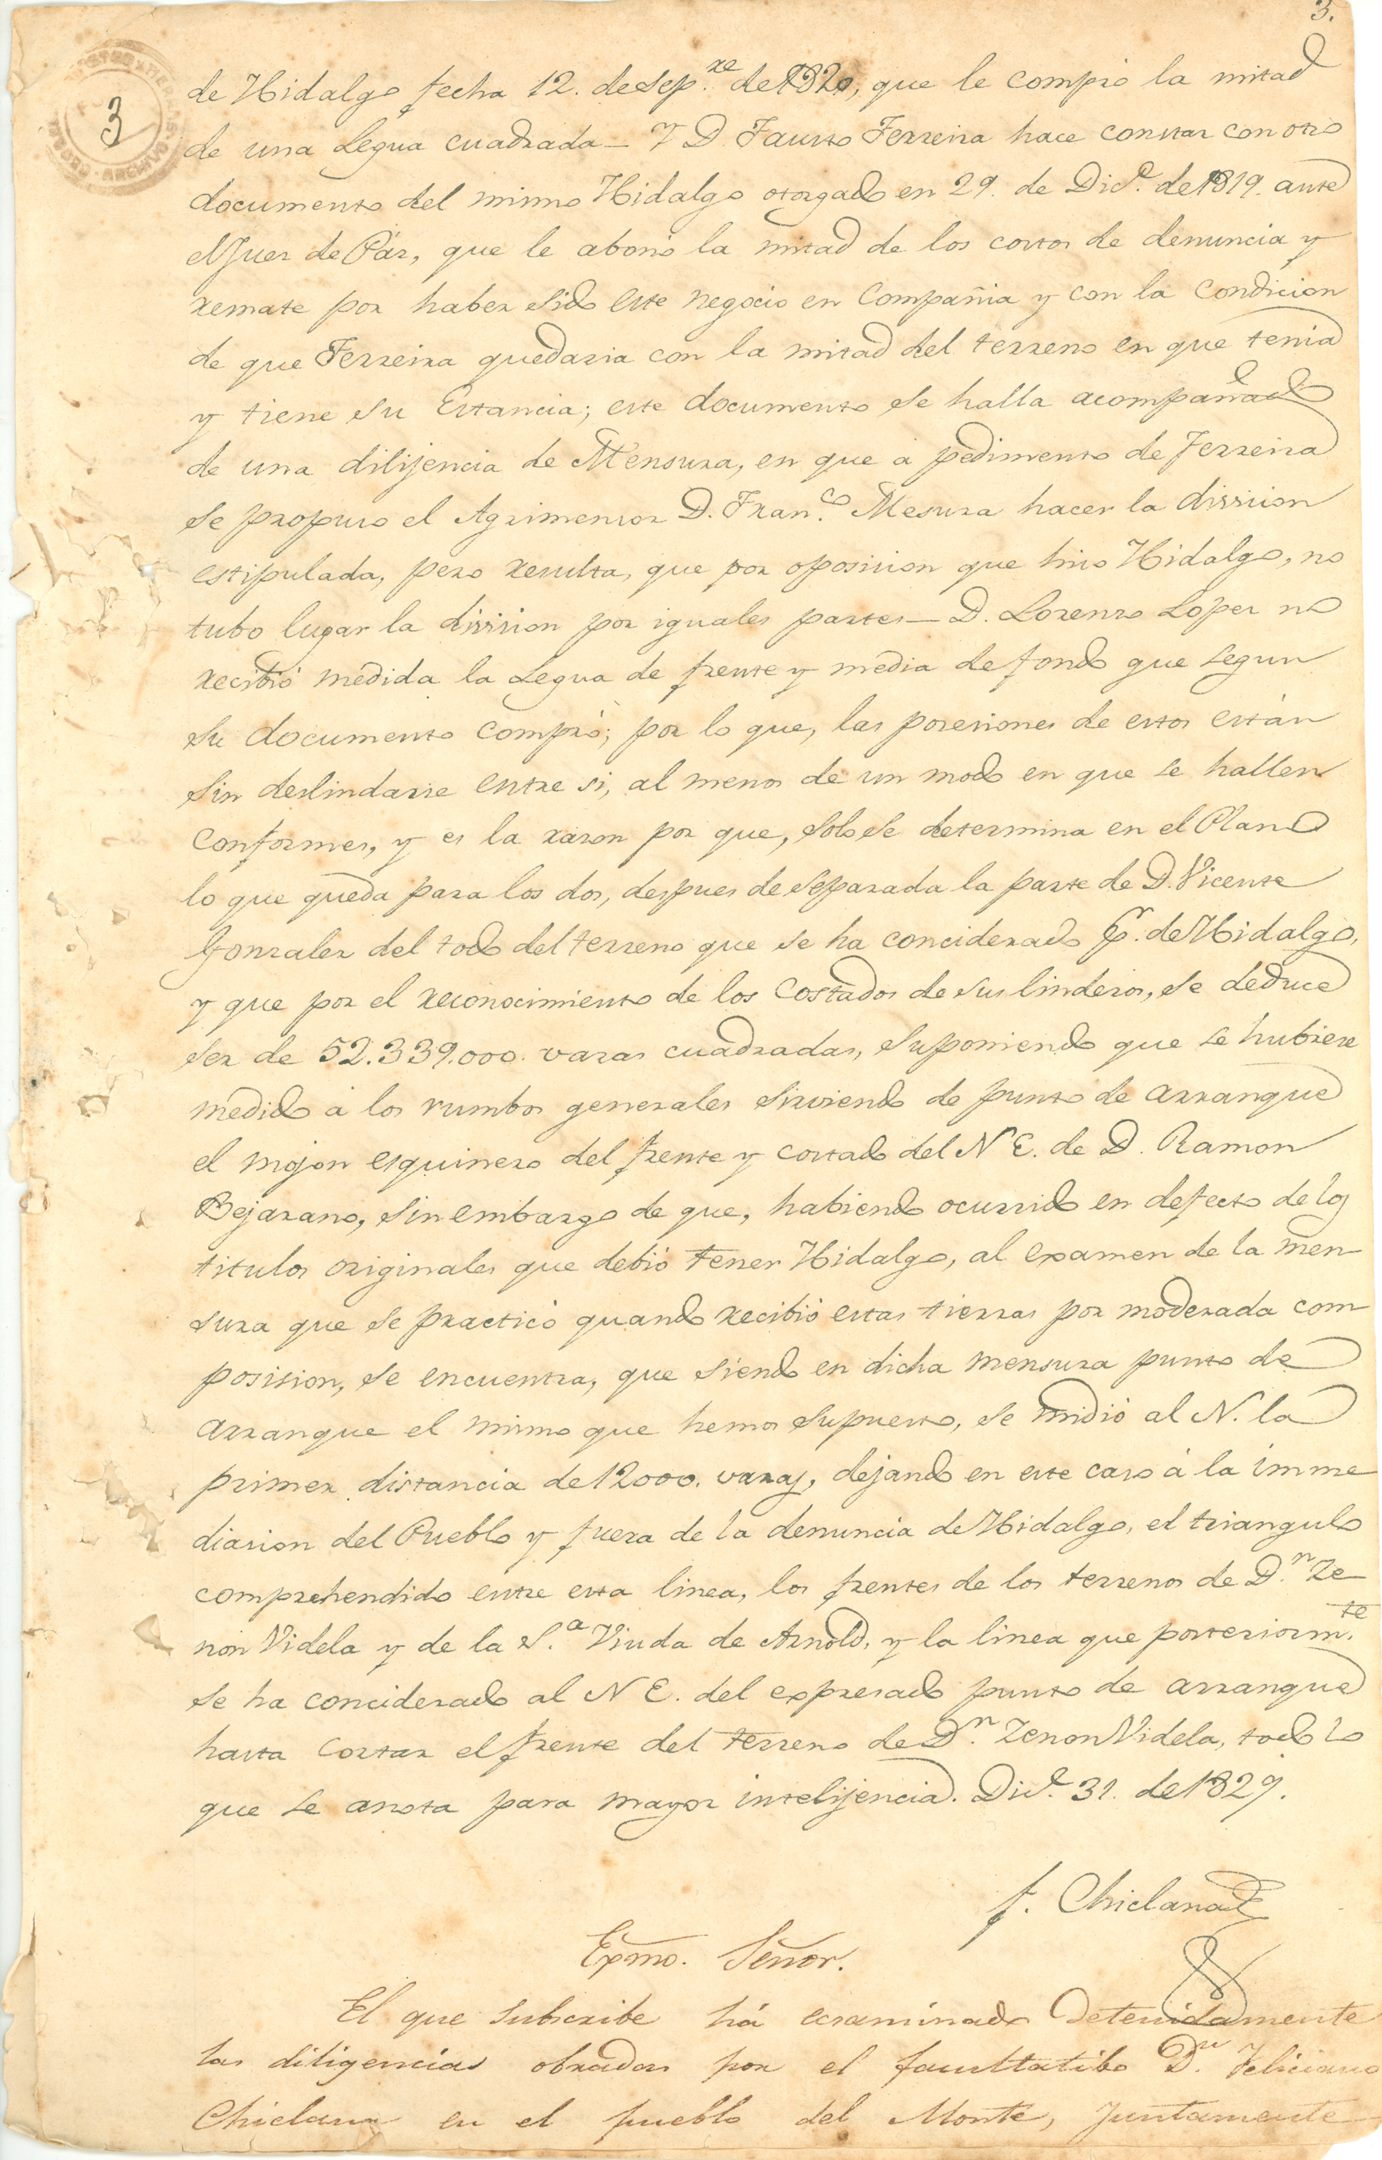 3.
3
de Hidalgo fecha 12. de Sep.re de 1820, que le compró la mitad
de una Legua cuadrada_ Y D. Fausto Ferreira hace constar con otro
documento del mismo Hidalgo otorgado en 29. de Dic.e de 1819. ante
el Juez de Páz, que le abonó la mitad de los costos de denuncia y
remate por haber sido este negocio en Compañia y con la condicion
de que Ferreira quedaria con la mitad del terreno en que tenia
y tiene su Estancia; este documento se halla acompañado
de una dilijencia de Mensura, en que á pedimento de Ferreira
se propuso el Agrimensor D. Fran.co Mesura hacer la division
estipulada, pero resulta, que por oposicion que hizo Hidalgo, no
tubo lugar la division por iguales partes_ D. Lorenzo Lopez no
recibió medida la Legua de frente y media de fondo que segun
su documento compró; por lo que, las posesiones de estos están
sin deslindarse entre si, al menos de un modo en que se hallen
conformes, y es la razon por que, solo se determina en el Plano
lo que queda para los dos, despues de separada la parte de D. Vicente
Gonzalez del todo del terreno que se ha conciderado pr. de Hidalgo,
y que por el reconocimiento de los costados de sus linderos, se deduce
ser de 52.339.000. varas cuadradas, suponiendo que se hubiere
medido á los rumbos generales sirviendo de punto de arranque
el mojon esquinero del frente y costado del N E. de D. Ramon
Bejarano, sin embargo de que, habiendo ocurrido en defecto de los
titulos originales que debió tener Hidalgo, al examen de la men-
sura que se practicó quando recibió estas tierras por moderada com-
posision, se encuentra, que siendo en dicha mensura punto de
arranque el mismo que hemos supuesto, se midió al N. la
primer distancia de 12000. varas, dejando en este caso á la imme
diasion del Pueblo y fuera de la denuncia de Hidalgo, el triangulo
comprehendido entre esta linea, los frentes de los terrenos de D.n Ze-
non Videla y de la S.a Viuda de Arnold, y la linea que posteriorm.te
se ha conciderado al N E. del expresado punto de arranque
hasta cortar el frente del terreno de D.n Zenon Videla, todo lo
que se anota para mayor intelijencia. Dic.e 31. de 1829.
f. Chiclana
Exmo. Señor.
El que subscribe há ecsaminado detenidamente
las diligencias obradas por el facultatibo D.n Feliciano
Chiclana en el pueblo del Monte, juntamente